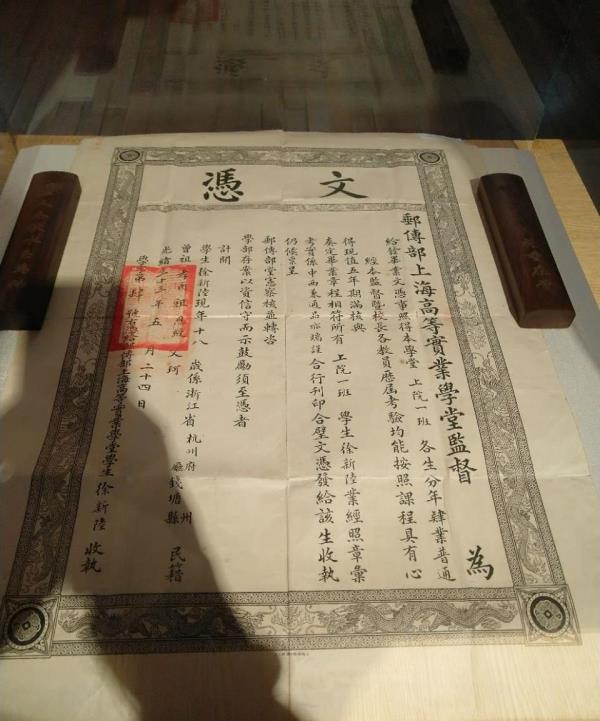 文憑
郵傳部上海高等實業學堂監督 為
給發畢業文憑事照得本學堂 上院一班 各生分年肄業普通
經本監督暨校長各教員歷屆考驗均能按照課程具有心
得現值五年期滿核與
奏定畢業章程相符所有 上院一班 學生徐新陸業經照章彙
考實係中西兼通品 合行刊印合璧文憑發給該生收執
仍候彙呈
郵傳部堂憲察核並轉咨
學部存案以資信守而示鼓勵須至憑者
計開
學生徐新陸現年十八 歲係浙江省 杭州 府 州 廳 錢塘 縣 民籍
曾祖 祖 父 珂
光緒三十三年五月二十四日
學字第肆號憑給郵傳部上海高等實業學堂學生徐新陸 收執